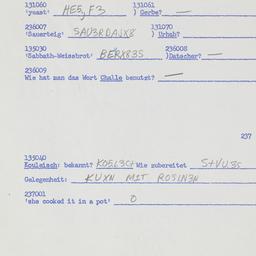 131060 131061
'yeast' HE5,F3 ) Gerbe? —
236007 131070
'Sauerteig' SAU3RDAJX8 ) Urhab?
135030 236008
'Sabbath-Weissbrot' BERX83S ) Datscher? —
236009
Wie hat man das Wort Challe benutzt? —
237
135040
Kouleisch: bekannt? Wie zubereitet
Gelegenheit: KUXN MIT ROSIN3N
237001
'she cooked it in a pot' 0